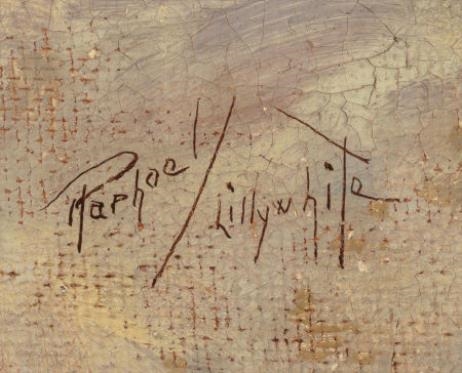 Raphael Lillywhite